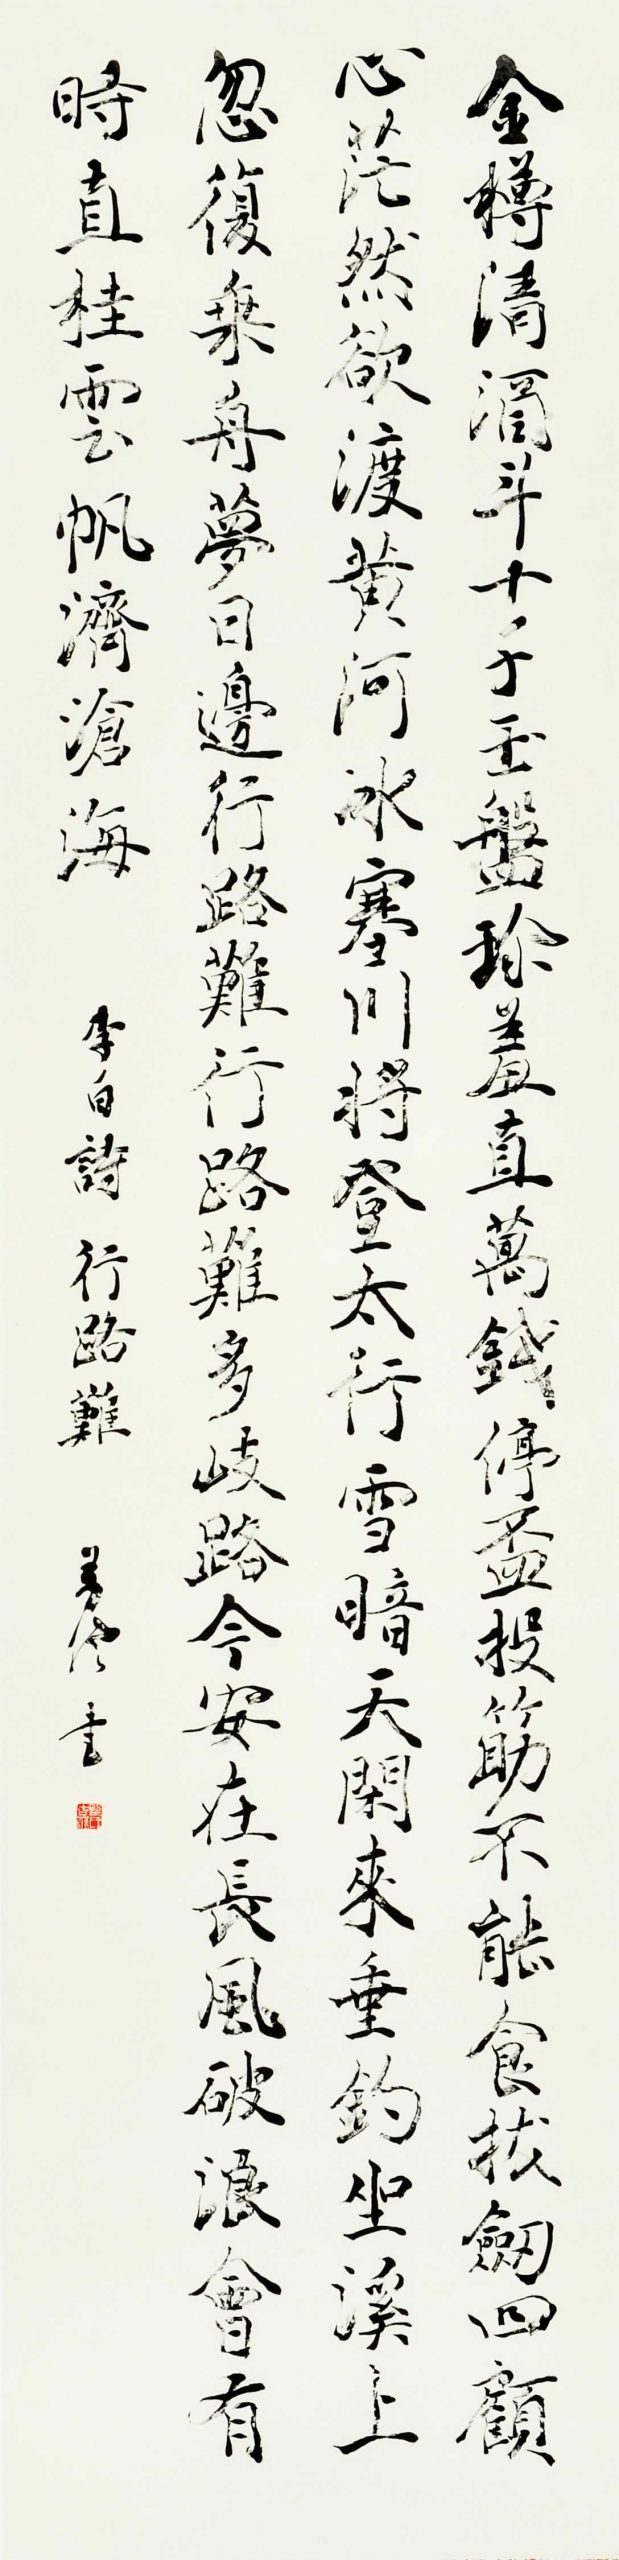 金樽清酒斗十千玉盤珍羞直萬錢停盃投筯不能食拔劒四顧
心茫然欲渡黃河冰塞川將登太行雪暗天閑來垂釣坐溪上
忽復乘舟夢日邊行路難行路難多岐路今安在長風破浪會有
時直桂雲帆濟滄海
李白詩 行路難 書